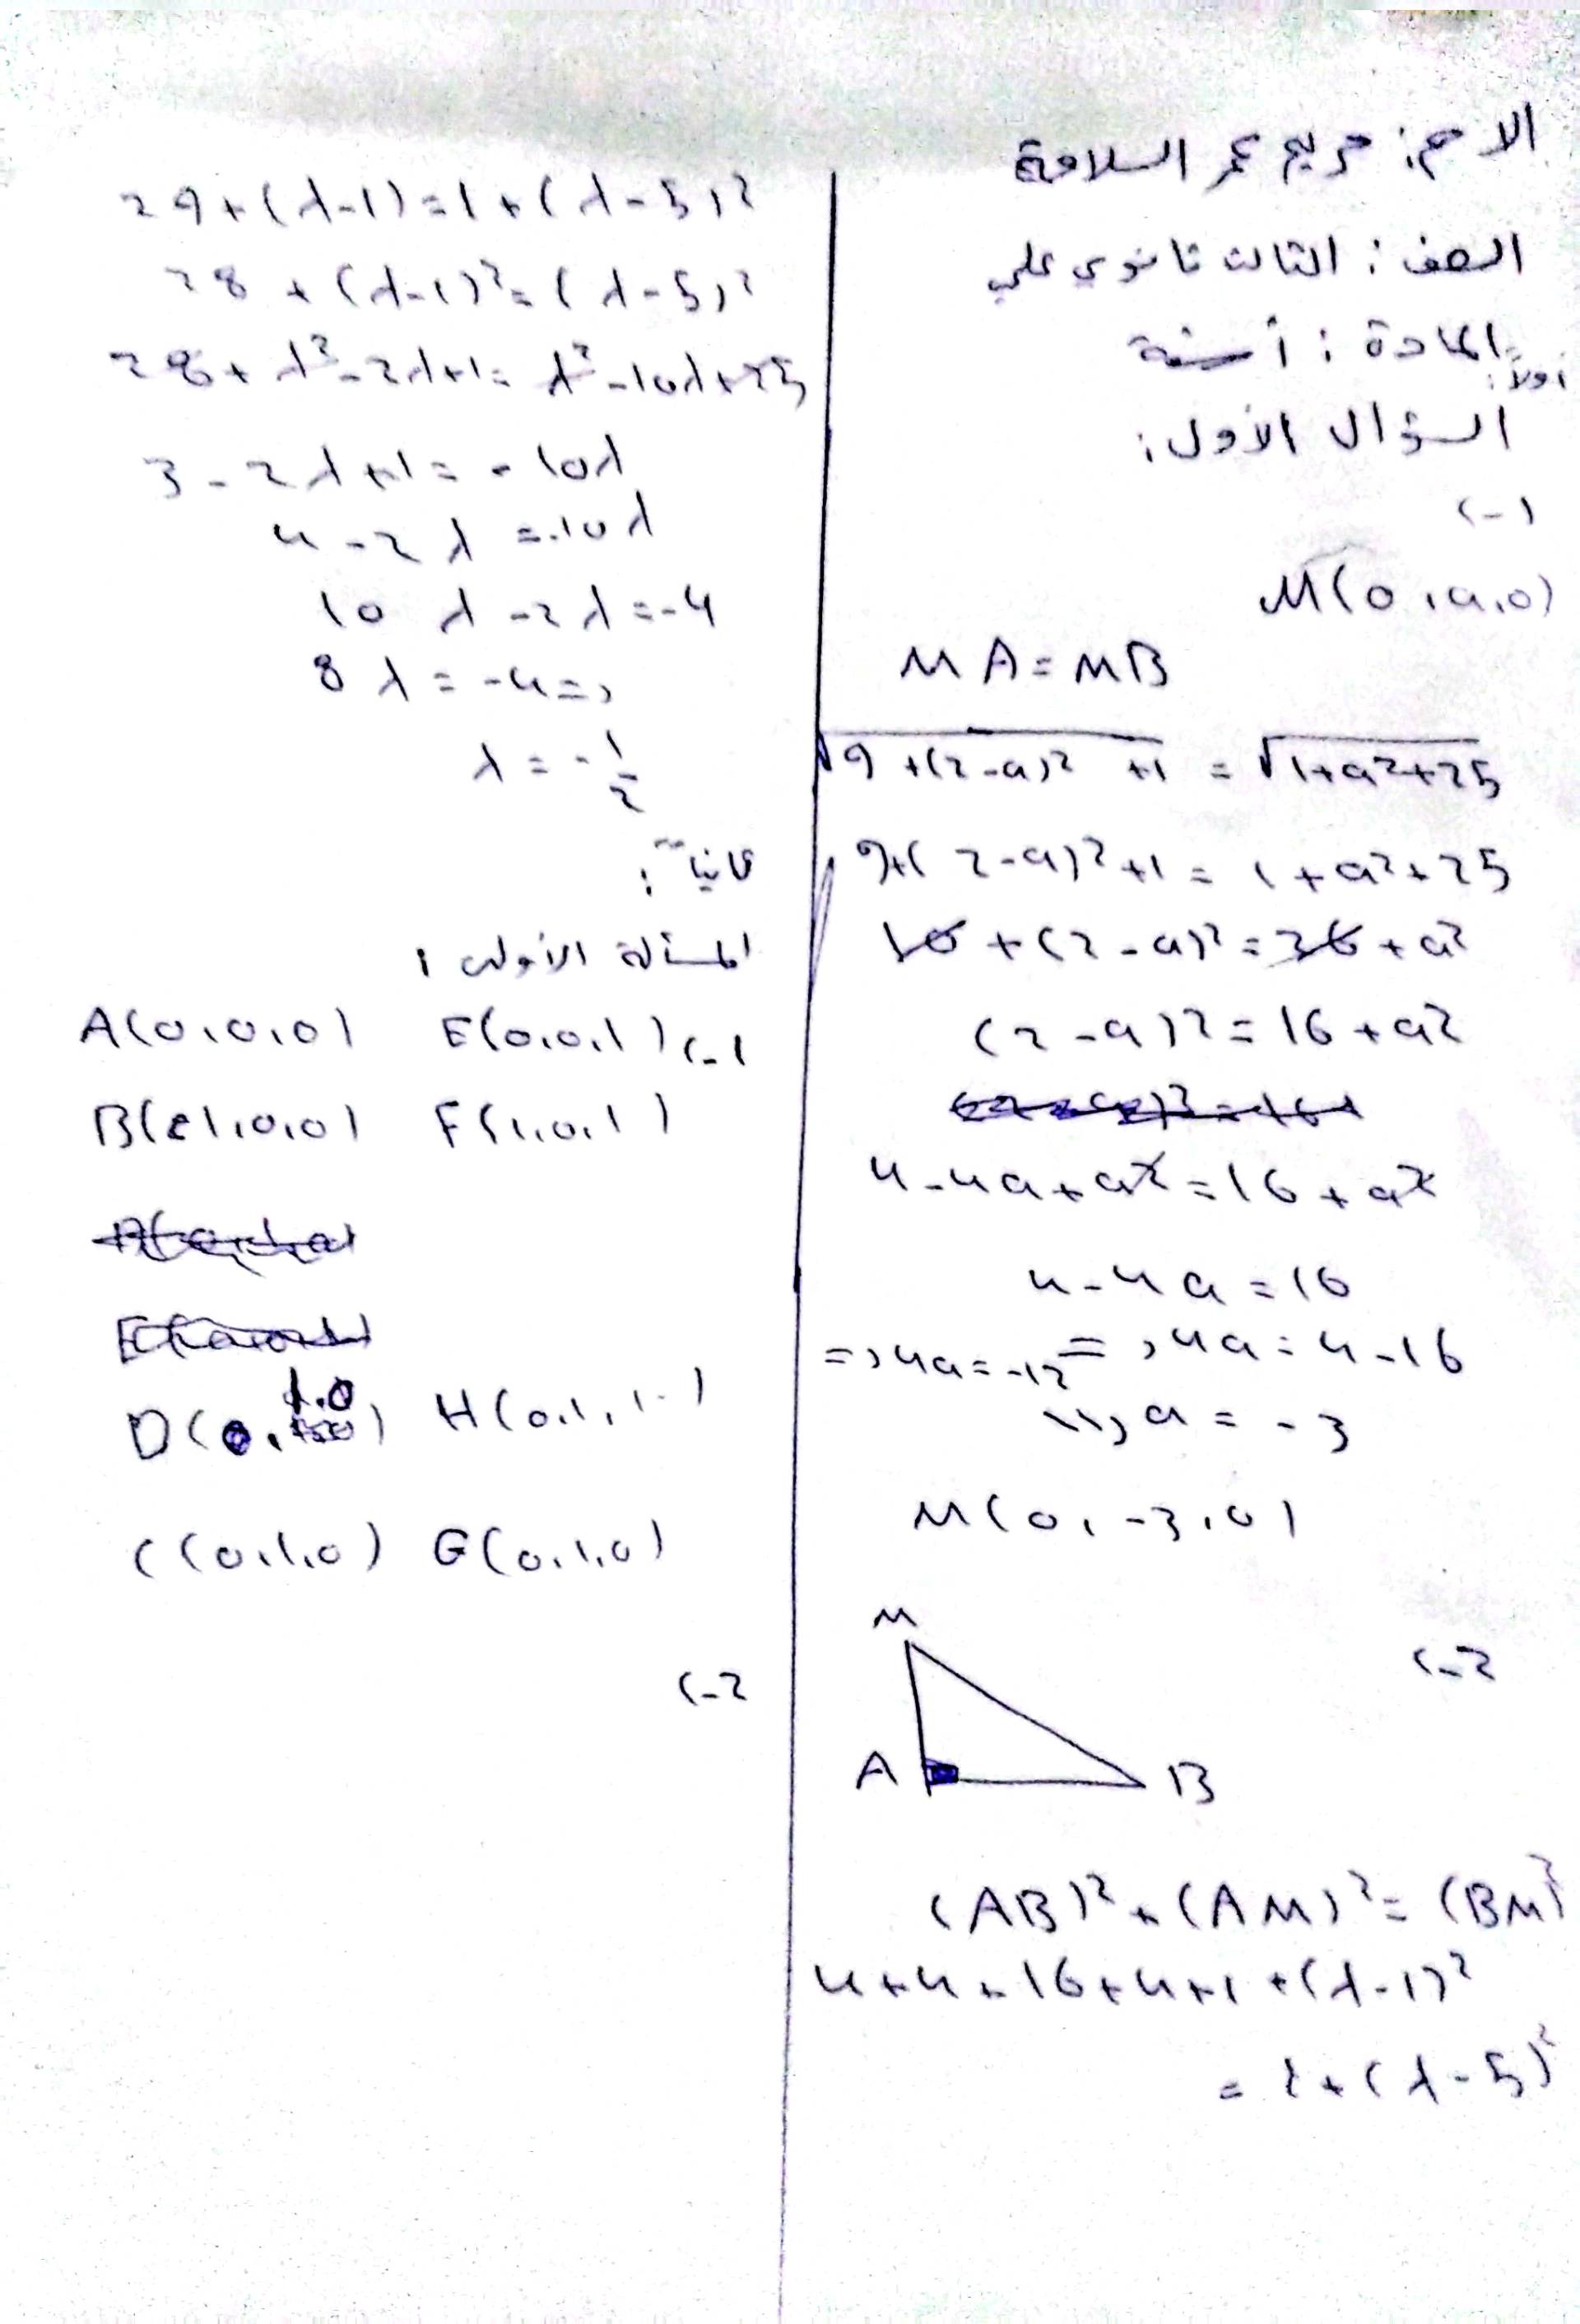 الاسم: مريم عمر السلامة
الصف: الثالث ثانوي علمي
المادة: أتمتة
أولاً:
السؤال الأول:
(-1
M(0,a,0)
MA=MB
√9+(2-a)²+1 = √1+a²+25
9+(2-a)²+1 = 1+a²+25
10+(2-a)²=26+a²
(2-a)²=16+a²
4-4a+a²=16+a²
4-4a=16
=>4a=4-16
=>4a=-12
=>a=-3
M(0,-3,0)
(-2
M
A B
(AB)²+(AM)²=(BM)²
4+4+16+4+1+(λ-1)²
=1+(λ-5)²
29+(λ-1)=1+(λ-5)²
28+(λ-1)²=(λ-5)²
28+λ²-2λ+1=λ²-10λ+25
3-2λ+1=-10λ
4-2λ=-10λ
10λ-2λ=-4
8λ=-4=>
λ=-1/2
ثانياً:
المسألة الأولى:
(-1
A(0,0,0) E(0,0,1)
B(1,0,0) F(1,0,1)
D(0,1,0) H(0,1,1)
C(0,1,0) G(0,1,0)
(-2